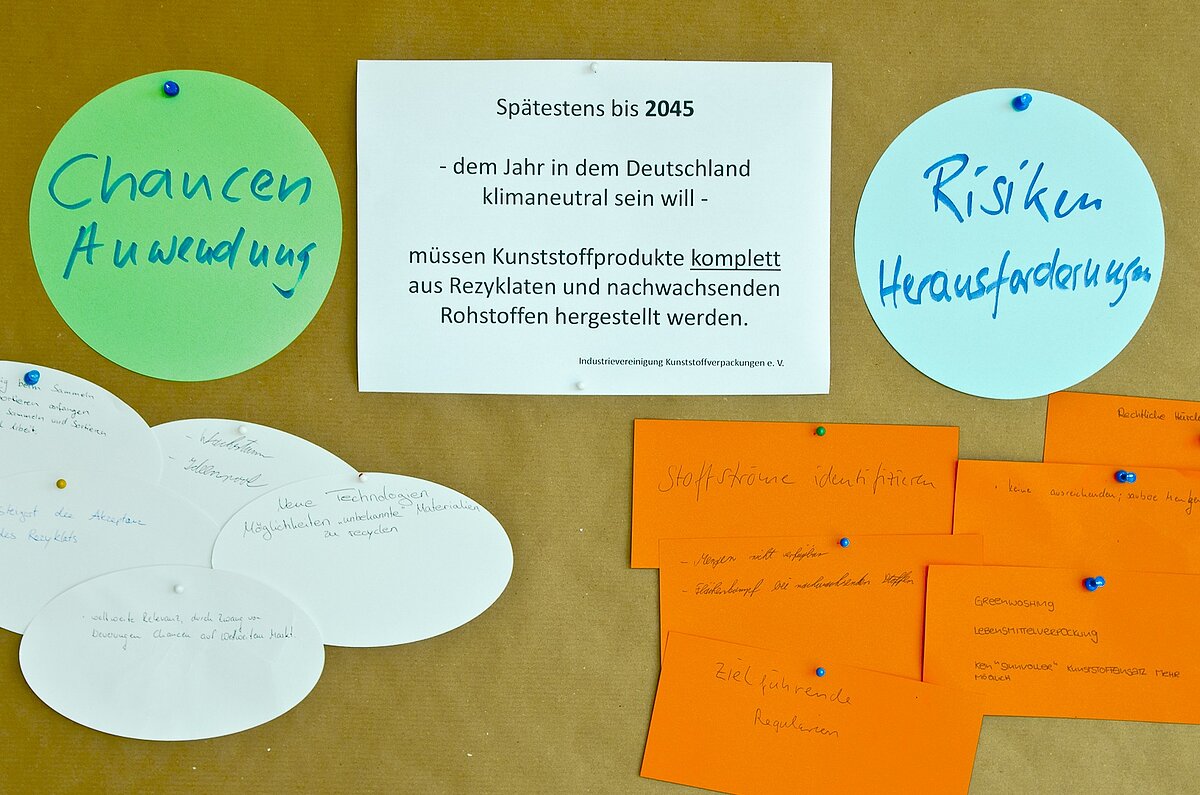 Chancen
Anwendung
Spätestens bis 2045
- dem Jahr in dem Deutschland
klimaneutral sein will -
müssen Kunststoffprodukte komplett
aus Rezyklaten und nachwachsenden
Rohstoffen hergestellt werden.
Industrievereinigung Kunststoffverpackungen e. V.
Risiken
Herausforderungen
beim Sammeln
Sammeln und Sortieren
- Wachstum
- Ideenpool
steigert die Akzeptanz
des Rezyklats
Neue Technologien
Möglichkeiten „unbekannte" Materialien
zu recyceln
· weltweite Relevanz, durch Zwang von
Neuerungen Chancen auf weltweitem Markt.
Stoffströme identifizieren
Rechtliche
· keine ausreichenden, saubere Mengen
- Mengen nicht verfügbar
- Flächenkampf bei nachwachsenden Stoffen
GREENWASHING
LEBENSMITTELVERPACKUNG
KEIN "SINNVOLLER" KUNSTSTOFFEINSATZ MEHR
MÖGLICH
Zielführende
Regularien